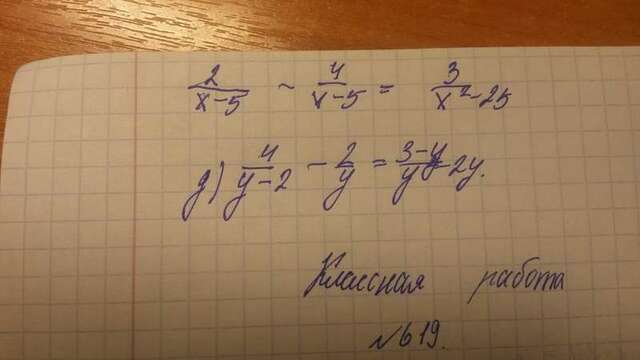 2/(x-5) ~ 4/(x-5) = 3/(x²-25)
д) 4/(y-2) - 2/y = (3-y)/(y²-2y).
Классная работа
№619.